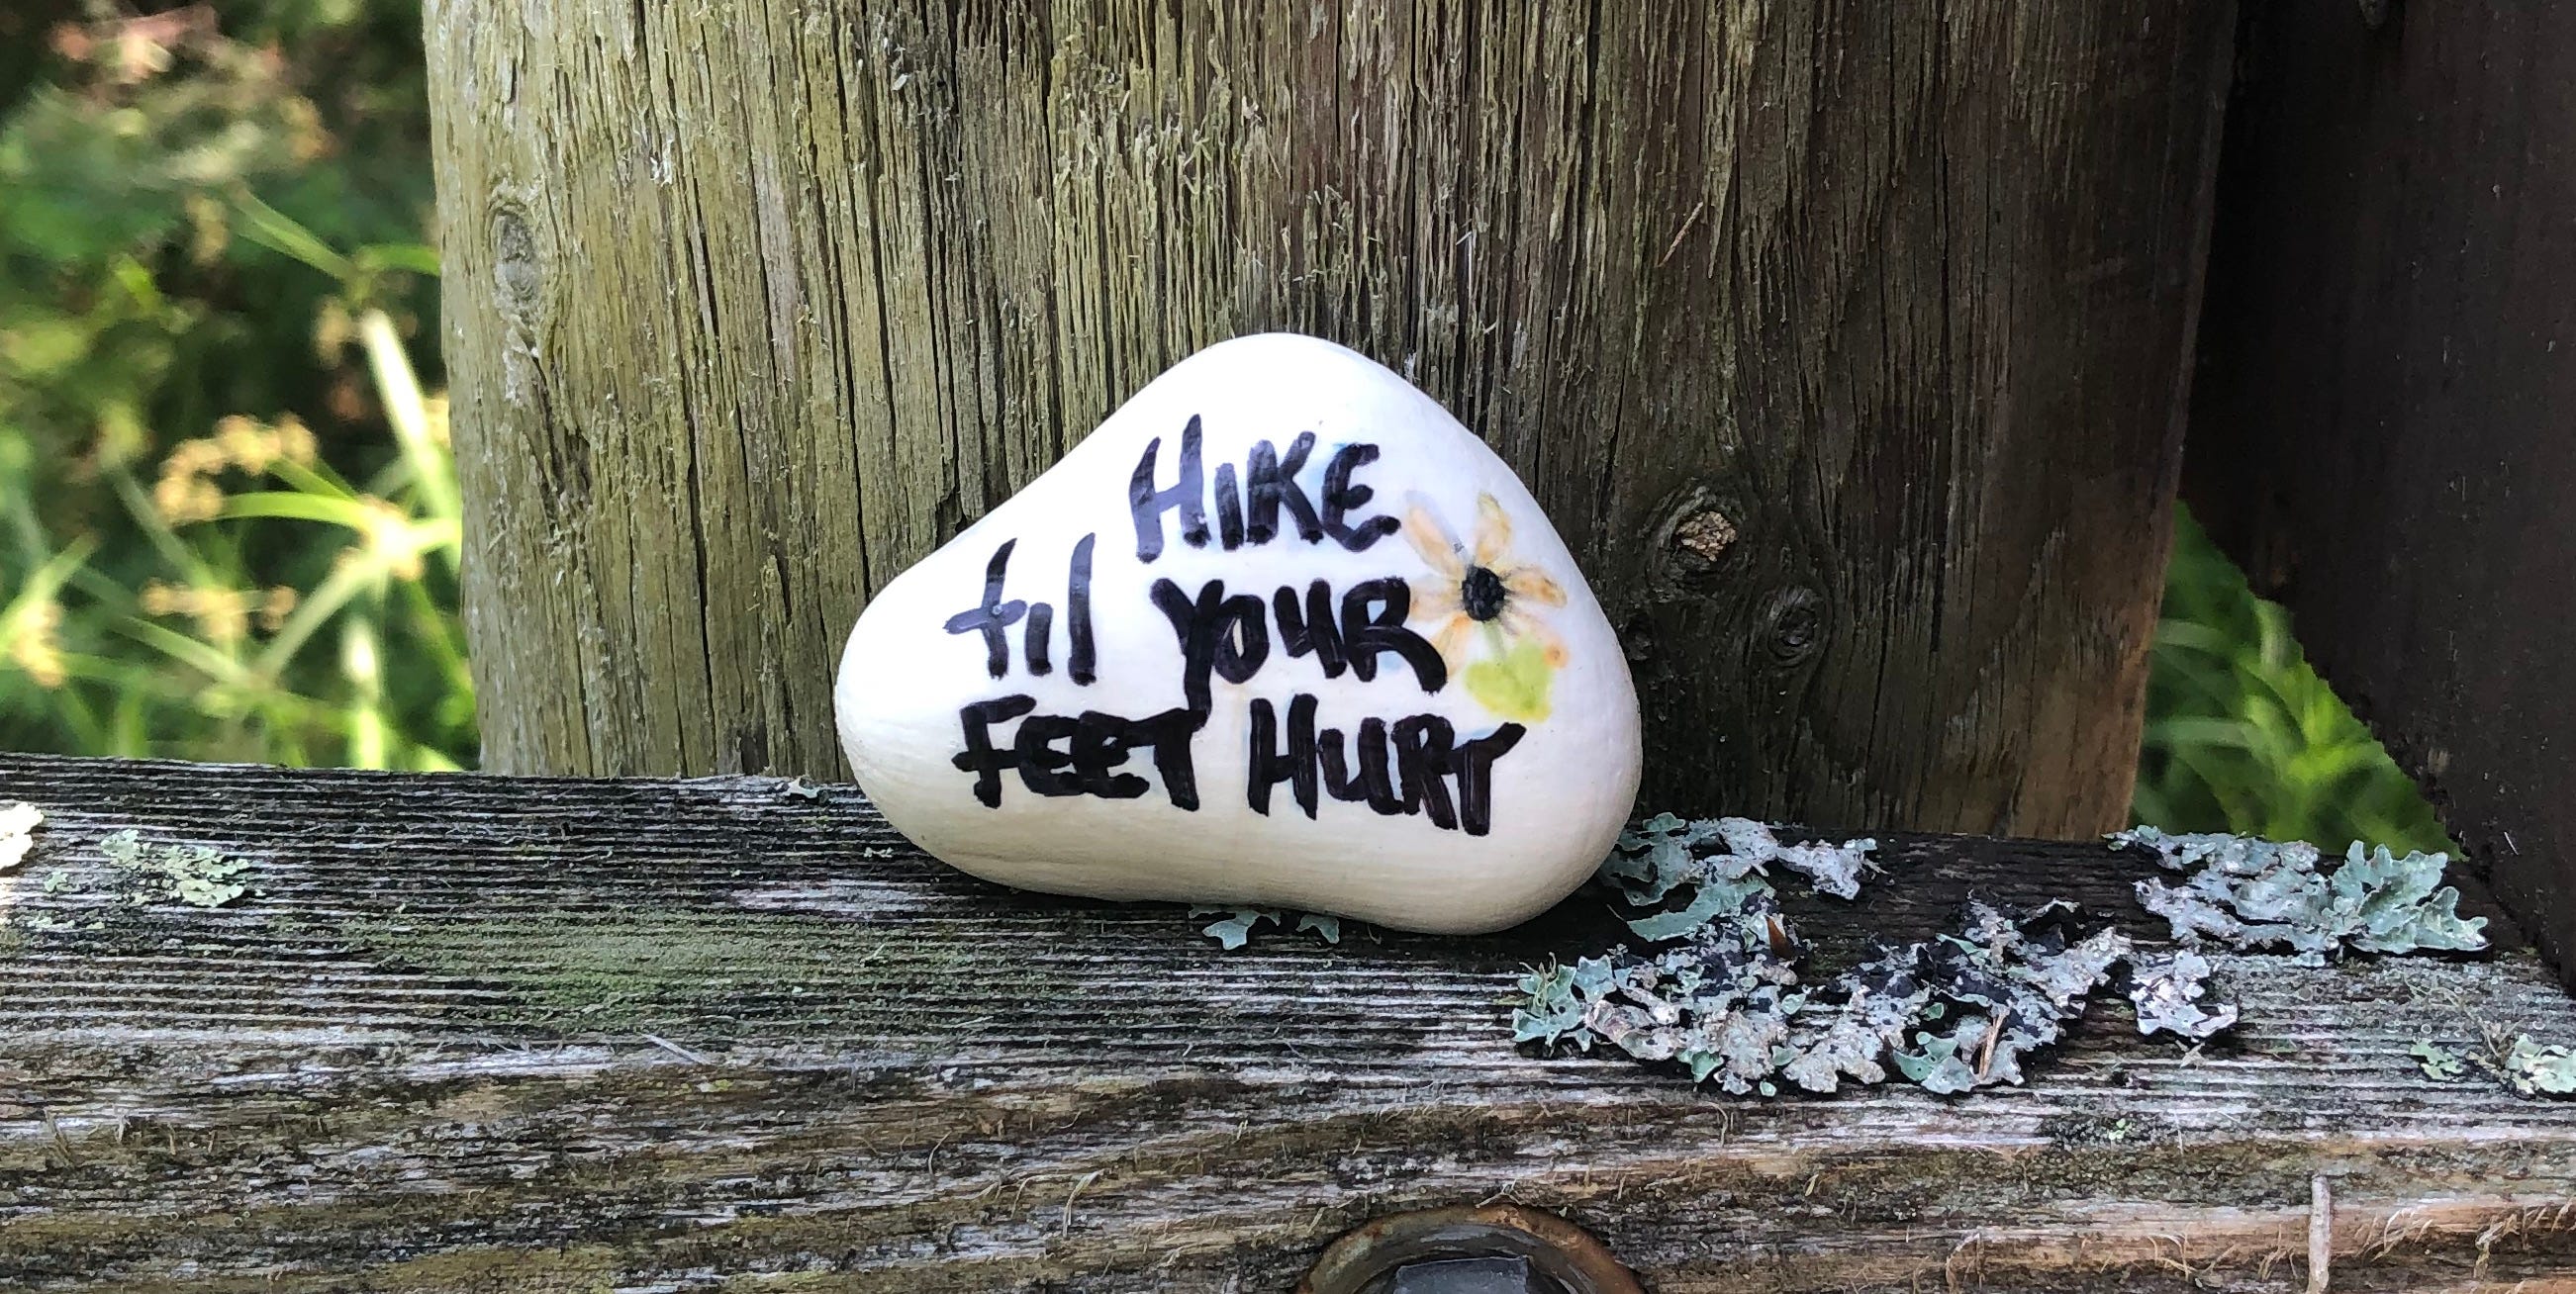 HIKE
til YOUR
FEET HURT